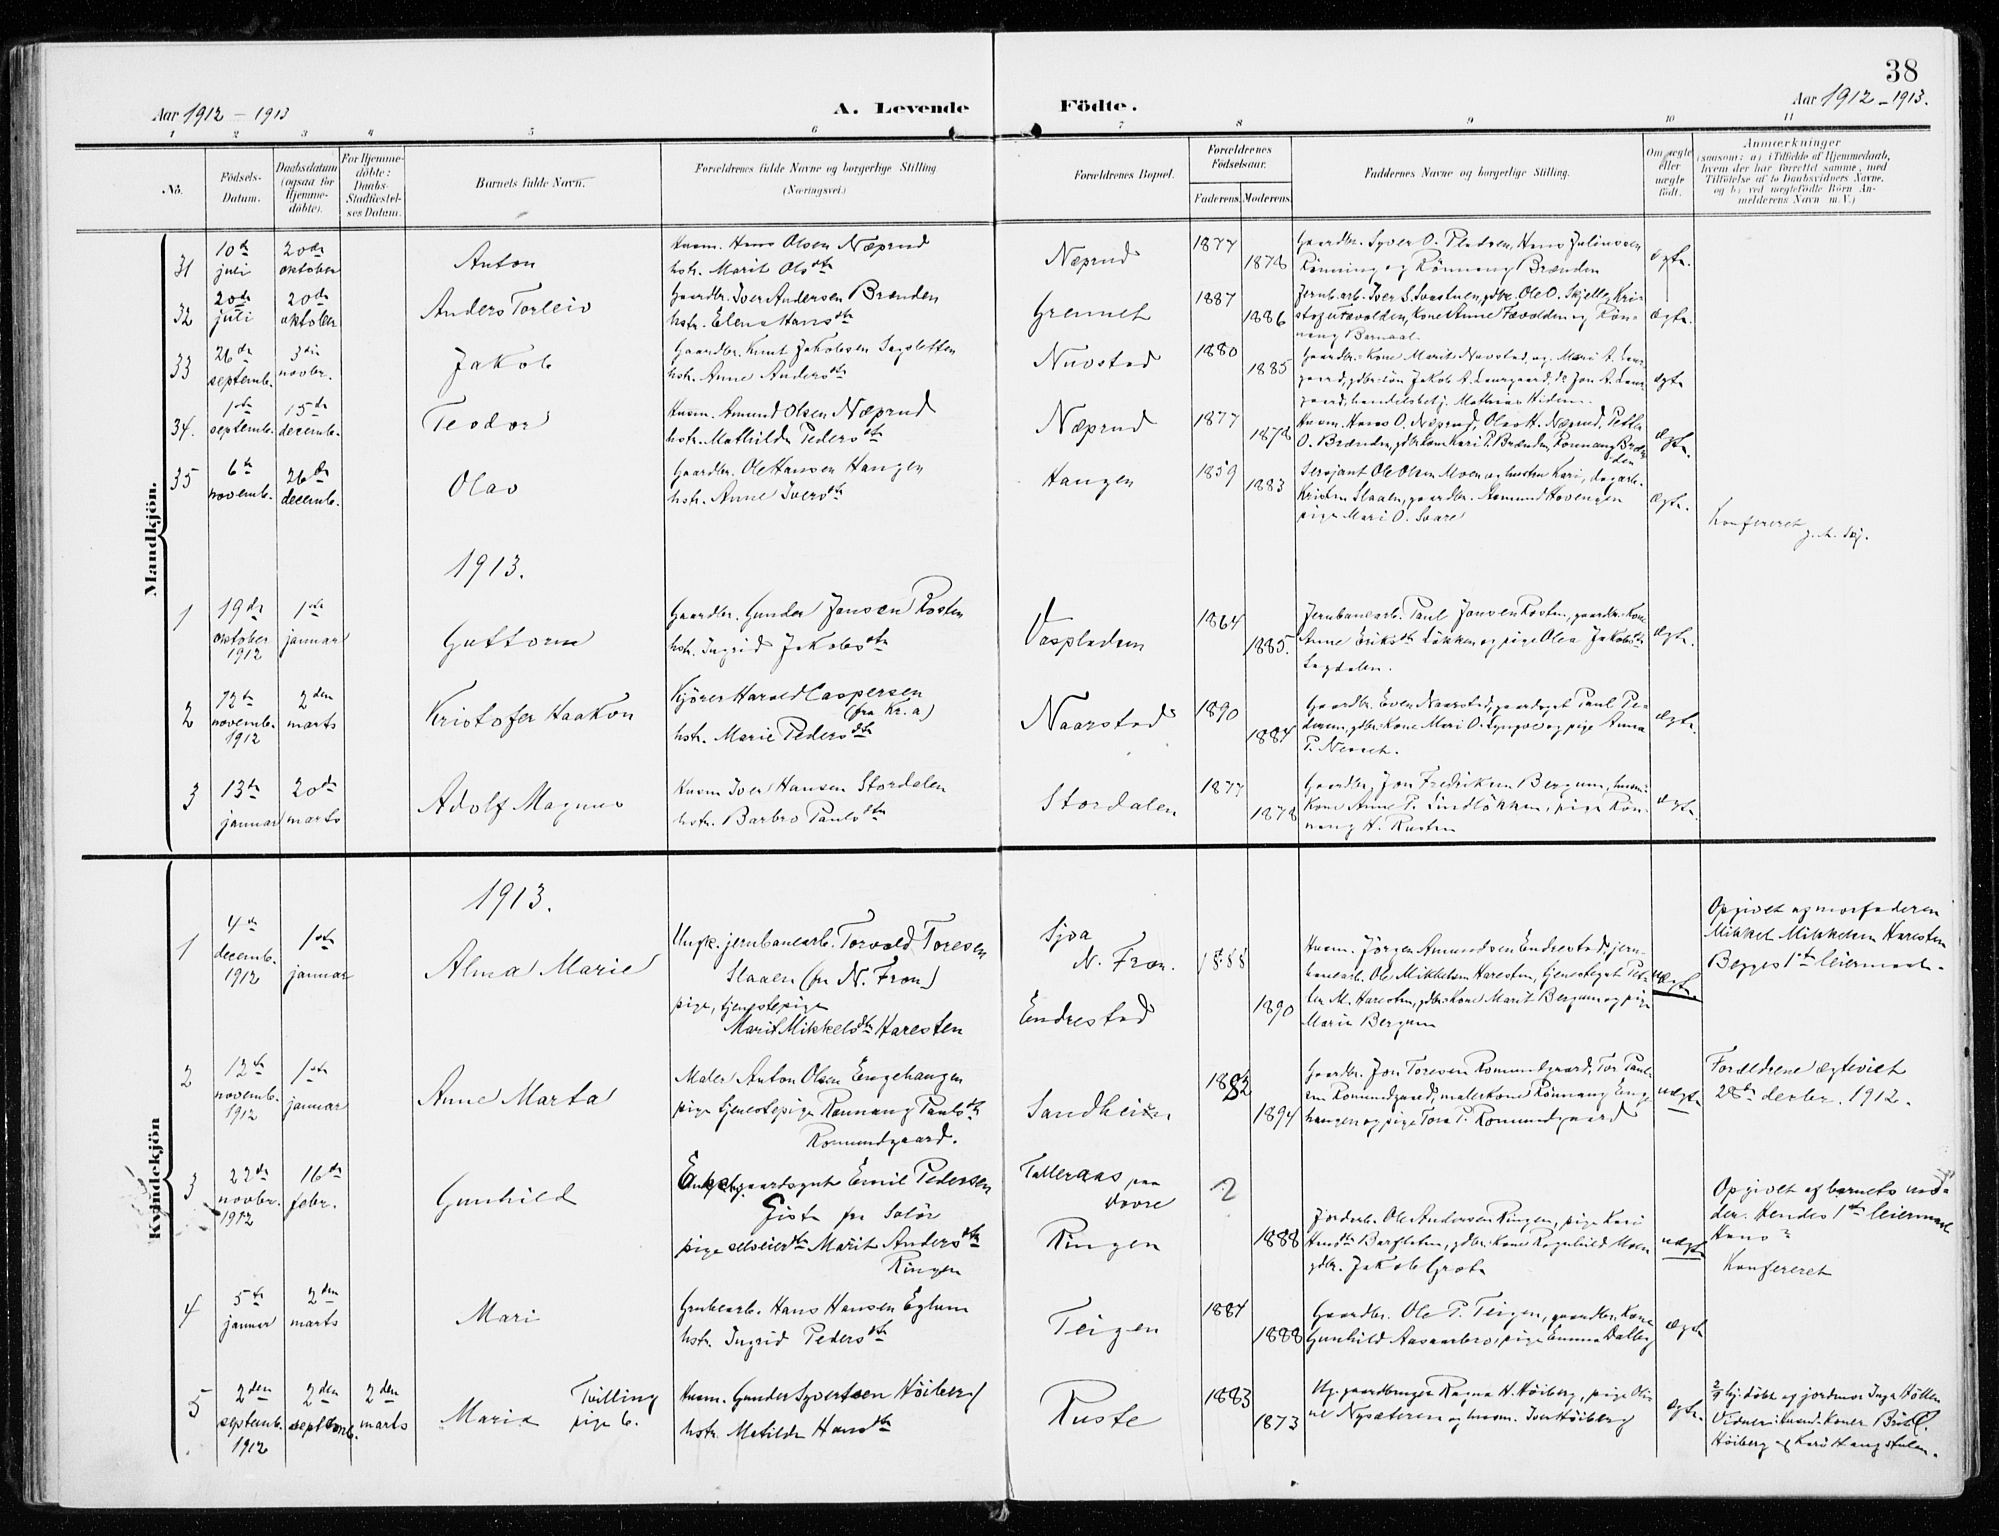 38
Aar 1912 - 1913
A. Levende Födte.
Aar 1912 - 1913.
1 2 3 4 5 6 7 8 9 10 11
No.
Födsels-Datum.
Daabsdatum (ogsaa for Hjemme-döbte).
For Hjemme-döbte: Daabs-Stadfæstel-ses Datum.
Barnets fulde Navn.
Forældrenes fulde Navne og borgerlige Stilling (Næringsvei.)
Forældrenes Bopæl.
Forældrenes Födselsaar.
Faderens. Moderens.
Faddernes Navne og borgerlige Stilling.
Om ægte eller uægte födt.
Anmærkninger
(saasom: a) i Tilfælde af Hjemmedaab, hvem der har forrettet samme, med Tilföielse af to Daabsvidners Navne, og b) ved uægtefödte Börn An-melderens Navn m.V.)
Mandkjön.
31 10de juli 20de oktober Anton
Husm. Hans Olsen Næprud
hstr. Marit Olsdtr
Næprud 1877 1878
Gaardbr. Syver O. Pladsen, Hans Julinssen
Rönning og Rönnaug Brænden
ægte.
32 20de juli 20de oktober Anders Torleiv
Gaardbr. Iver Andersen Brænden
hstr. Elene Hansdtr
Grennet 1887 1886
Jernb.arb. Iver S. Svastuen, gdbr. Ole O. Skjelle, Kri-
stofer Tævolden, Kone Anne Tævolden og Rön-
naug Barnaal.
ægte.
33 26de septemb. 3die novbr. Jakob
Gaardbr. Knut Jakobsen Sagsletten
hstr. Anne Andersdtr
Nuvstad 1880 1885
Gaardbr. Kone Marit Nuvstad, og Mari A. Laur-
gaard, gdbrsön Jakob A. Laurgaard, do Jon A. Laur-
gaard, handelsbetj. Mathias Hidem.
ægte
34. 1ste septemb. 15de decemb. Teodor
Husm. Amund Olsen Næprud
hstr. Mathilde Pedersdtr
Næprud 1877 1878
Husm. Hans O. Næprud, Ola H. Næprud, Petter
O. Brænden, gdbrkone Kari P. Brænden, Rönnaug Bræn-
den
ægte.
35 6te novemb. 26de decemb. Olav
Gaardbr. Ole Hansen Haugen
hstr. Anne Iversdtr
Haugen 1859 1883
Sersjant Ole Olsen Moen og hustru Kari, dagarb.
Kristen Slaaen, gaardbr. Amund Hovengen
pige Mari O. Svare
ægte.
Konfereret
1913.
1 19de oktober 1912 1ste januar Guttorm
Gaardbr. Gunder Jonsen Rosten
hstr. Ingrid Jakobsdtr
Vaspladsen 1864 1885.
Jernbanearb. Paul Jonsen Rosten, gaardbr. Kone
Anne Eriksdtr Lökken og pige Olea Jakobsdtr
Lagdalen.
ægte.
2 12te novemb. 1912 2den marts Kristofer Haakon
Kjörer Harald Caspersen
(fra Kr.a)
hstr. Marie Pedersdtr
Naarstad 1890 1884
Gaardbr. Even Naarstad, gaardsgut Paul Pe-
dersen, gdbr. Kone Mari O. Lyngve og pige Anna
P.
ægte.
3 13de januar 20de marts Adolf Magnus
Husm Iver Hansen Stordalen
hstr. Barbro Paulsdtr
Stordalen 1877 1878
Gaardbr. Jon Fredriksen Bergum, husm.
Kone Anne P. Lindlökken, pige Rön-
naug H. Rusten
ægte.
Kvindekjön
1913.
1 4de decemb. 1912 1ste januar Alma Marie
Ungk. jernbanearb. Torvald Toresen
Slaaen (fr N. Fron)
pige, tjenestepige
Marit Mikkelsdtr Haresten
Sjoa
N. Fron.
Endrestad
1888 1890
Husm. Jörgen Amundsen Endrestad, jern-
banearb. Ole Mikkelsen Haresten, tjenestegut Pet-
ter M. Haresten, gdbr. Kone Marit Bergum og pige
Marie Bergum
uægte.
Opgivet og morfaderen
Mikkel Mikkelsen Haresten
Begges 1ste leiermaal.
2 12te novemb. 1912 1ste januar Anne Marta
Maler Anton Olsen Engehaugen
pige tjenestepige Rönnaug Paulsdtr
Romundgaard.
Sandheim 1882 1894
Gaardbr. Jon Toresen Romundgaard, Tor Paul-
sen Romundgaard, malerkone Rönnaug Enge-
haugen og pige Tora P. Romundgaard
uægte
Forældrene ægteviet
28de decbr. 1912.
3 22de novbr. 1912 16de febr. Gunhild
gaardsgut Emil Pedersen
fr Solör
pige selveierdtr Marit Andersdtr
Ringen
Talleraas paa
Dovre
Ringen
? 1888
Jorderb. Ole Andersen Ringen, pige Kari
Hansdtr Barfleten, gdbr. Kone Ragnhild Moen
gdbr. Jakob Grote
uægte
Opgivet af barnets mo-
der. Hendes 1ste leiermaal
Hans ?
Konfereret
4 5te januar 2den marts Mari
Grubearb. Hans Hansen Eglum
hstr. Ingrid Pedersdtr
Teigen 1884 1888
Gaardbr. Ole P. Teigen, gaardbr. Kone
Gunhild Aasaarbro, pige Emma Dalberg
ægte
5 2den septemb. 1912 2den septemb. 2den marts Maria Tvilling pige b.
Husm. Gunder Syvertsen Höiberg
hstr. Matilde Hansdtr
Ruste 1883 1873
Ug. gaardbruger Ragna H. Höiberg, pige Oli-
ne Nysæteren og husm. Iver Höiberg
ægte.
2/9 hj. döbt og jordmor Inga Hölen
Vidner: husm. Koner
Höiberg og Kari Haugstulen.